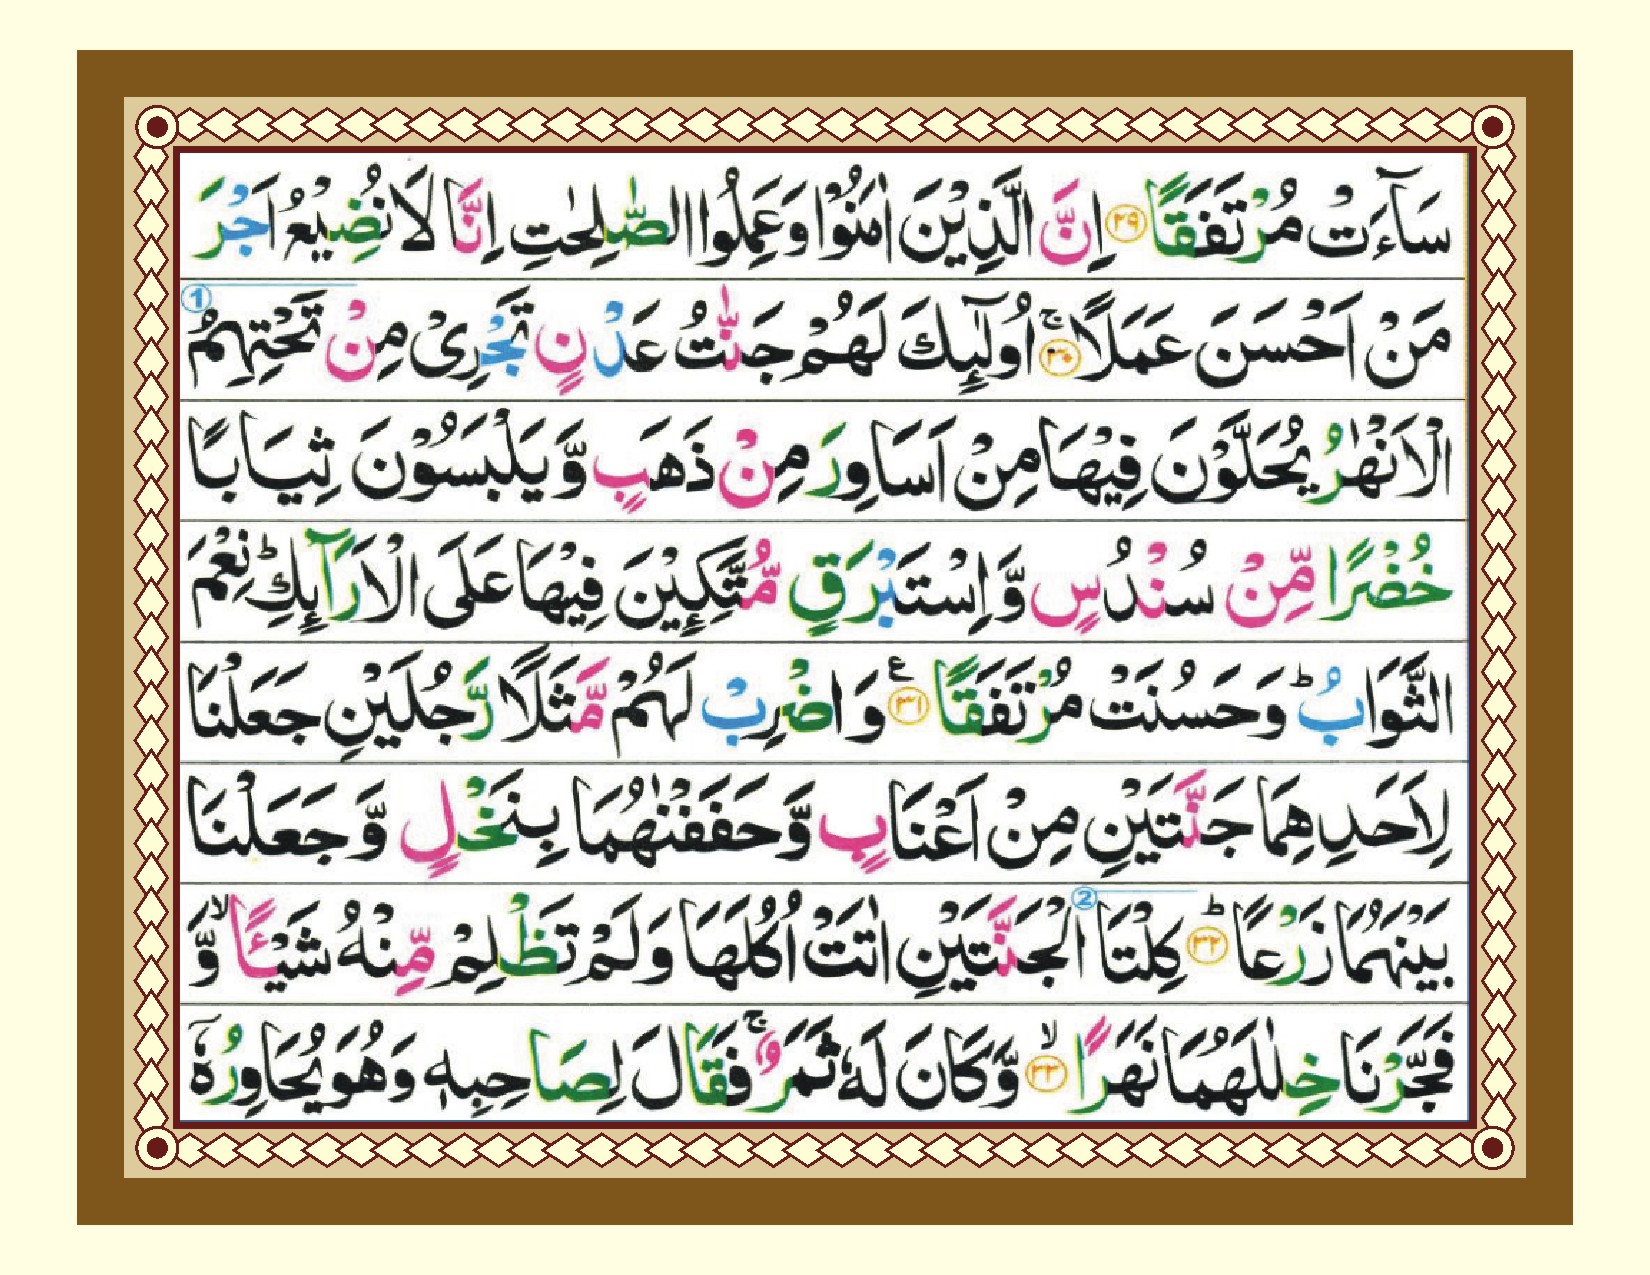 سَآءَتْ مُرْتَفَقًا ﴿۲۹﴾ اِنَّ الَّذِیْنَ اٰمَنُوْا وَعَمِلُوا الصّٰلِحٰتِ اِنَّا لَا نُضِیْعُ اَجْرَ
مَنْ اَحْسَنَ عَمَلًا ﴿۳۰﴾ۚ اُولٰٓئِكَ لَهُمْ جَنّٰتُ عَدْنٍ تَجْرِیْ مِنْ تَحْتِهِمُ ①
الْاَنْهٰرُ یُحَلَّوْنَ فِیْهَا مِنْ اَسَاوِرَ مِنْ ذَهَبٍ وَّیَلْبَسُوْنَ ثِیَابًا
خُضْرًا مِّنْ سُنْدُسٍ وَّاِسْتَبْرَقٍ مُّتَّكِـِٕیْنَ فِیْهَا عَلَی الْاَرَآئِكِ ؕ نِعْمَ
الثَّوَابُ ؕ وَحَسُنَتْ مُرْتَفَقًا ﴿۳۱﴾ ع وَاضْرِبْ لَهُمْ مَّثَلًا رَّجُلَیْنِ جَعَلْنَا
لِاَحَدِهِمَا جَنَّتَیْنِ مِنْ اَعْنَابٍ وَّحَفَفْنٰهُمَا بِنَخْلٍ وَّجَعَلْنَا
بَیْنَهُمَا زَرْعًا ﴿۳۲﴾ؕ كِلْتَا ② الْجَنَّتَیْنِ اٰتَتْ اُكُلَهَا وَلَمْ تَظْلِمْ مِّنْهُ شَیْـًٔا ۙ وَّ
فَجَّرْنَا خِلٰلَهُمَا نَهَرًا ﴿۳۳﴾ۙ وَّكَانَ لَهٗ ثَمَرٌ ۚ فَقَالَ لِصَاحِبِهٖ وَهُوَ یُحَاوِرُهٗۤ